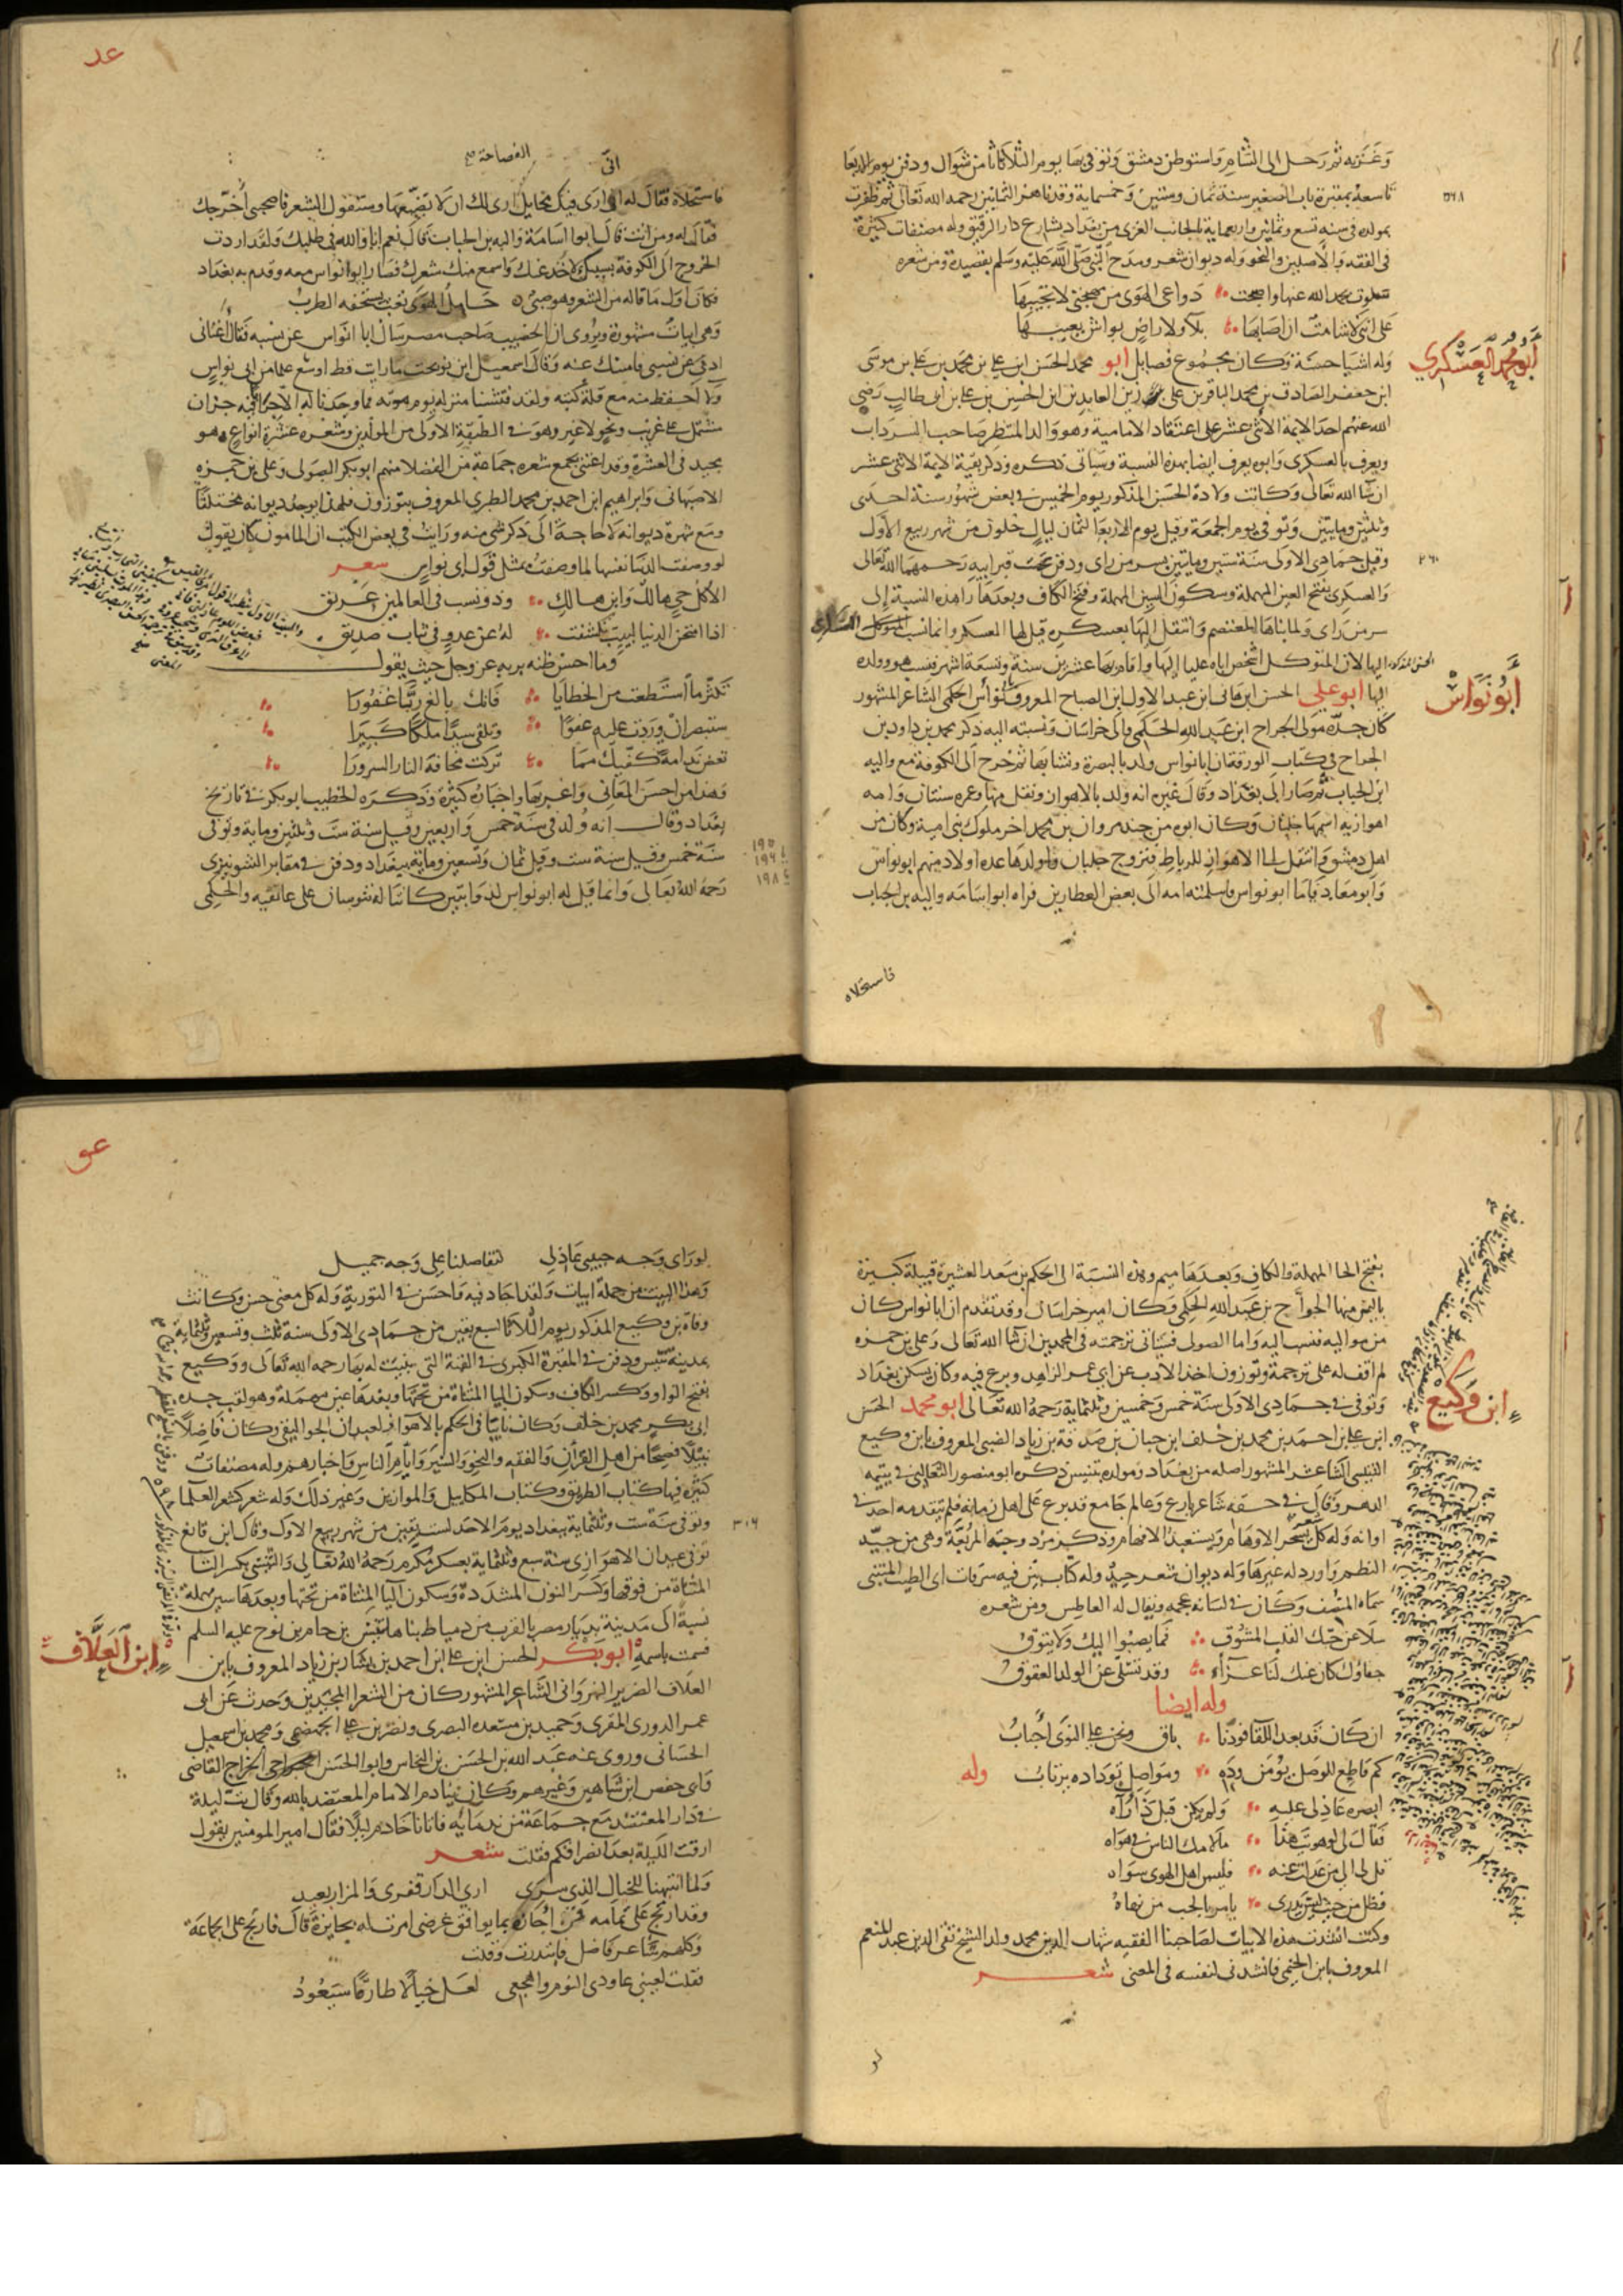 وغزنة ثم رحل الى الشام واستوطن دمشق وتوفي بها يوم الثلاثا ثامن شوال ودفن يوم الاربعا
تاسعه بمقبرة باب الصغير سنة ثمان وستين وخمسماية وقد ناهز الثمانين رحمه الله تعالى ثم ظفرت
٥٦٨
بمولده في سنه تسع وثمانين واربعماية بالجانب الغربي من بغداد بشارع دار الرقيق وله مصنفات كثيرة
في الفقه والاصلين والنحو وله ديوان شعر ومدح النبي صلى الله عليه وسلم بقصيدة ومن شعره
سلوت بحمد الله عنها واصبحت دواعي الهوى من نحوها لا نجيبها
على انني لا شامت ان اصابها بلاء ولا راض بواش يعيبها
ابو محمد العسكري
وله اشيا حسنة وكان مجموع فضايل ابو محمد الحسن ابن علي بن محمد بن علي بن موسى
ابن جعفر الصادق بن محمد الباقر بن علي زين العابدين ابن الحسين بن علي بن ابي طالب رضي
الله عنهم احد الايمة الاثني عشر على اعتقاد الامامية وهو والد المنتظر صاحب السرداب
ويعرف بالعسكري وابوه يعرف ايضا بهذه النسبة وسياتي ذكره وذكر بقية الايمة الاثني عشر
ان شا الله تعالى وكانت ولادة الحسن المذكور يوم الخميس في بعض شهور سنة احدى
وثلثين ومايتين وتوفي يوم الجمعة وقيل يوم الاربعا لثمان ليال خلون من شهر ربيع الاول
وقيل جمادي الاولى سنة ستين ومايتين بسر من راى ودفن بجنب قبر ابيه رحمهما الله تعالى
٢٦٠
والعسكري بفتح العين المهملة وسكون السين المهملة وفتح الكاف وبعدها را هذه النسبة الى
سر من راى ولما بناها المعتصم وانتقل اليها بعسكره قيل لها العسكر وانما نسب
اليها لان المتوكل اشخص اباه عليا اليها واقام بها عشرين سنة وتسعة اشهر فنسب هو وولده
ابو نواس
اليها ابو علي الحسن ابن هاني ابن عبد الاول ابن الصباح المعروف بابي نواس الحكمي الشاعر المشهور
كان جده مولى الجراح ابن عبد الله الحكمي والي خراسان ونسبته اليه ذكر محمد بن داود بن
الجراح في كتاب الورقة ان ابا نواس ولد بالبصرة ونشا بها ثم خرج الى الكوفة مع والبه
ابن الحباب ثم صار الى بغداد وقال غيره انه ولد بالاهواز ونقل منها وعمره سنتان وامه
اهوازية اسمها جلبان وكان ابوه من جند مروان بن محمد اخر ملوك بني امية وكان من
اهل دمشق وانتقل الى الاهواز للرباط فتزوج جلبان واولدها عدة اولاد منهم ابو نواس
وابو معاذ فاما ابو نواس فاسلمته امه الى بعض العطارين فراه ابو اسامه والبه بن الحباب
فاستحلاه
عد
فاستحلاه فقال له اني ارى فيك مخايل ارى لك ان لا تضيعها وستقول الشعر فاصحبني اخرجك
فقال له ومن انت قال ابو اسامة والبه بن الحباب قال نعم انا والله في طلبك ولقد اردت
الخروج الى الكوفة بسببك لاخذ عنك واسمع منك شعرك فصار ابو نواس معه وقدم به بغداد
فكان اول ما قاله من الشعر وهو صبي حامل الهوى تعب يستخفه الطرب
وهي ابيات مشهورة ويروى ان الخصيب صاحب مصر سال ابا نواس عن نسبه فقال اغناني
ادبي عن نسبي فامسك عنه وقال اسمعيل ابن نوبخت ما رايت قط اوسع علما من ابي نواس
ولا احفظ منه مع قلة كتبه ولقد فتشنا منزله يوم موته فما وجدنا له الا جزان
مشتمل على غريب ونحو لا غير وهو في الطبقة الاولى من المولدين وشعره عشرة انواع وهو
مجيد في العشرة وقد اعتنى بجمع شعره جماعة من الفضلا منهم ابو بكر الصولي وعلي بن حمزه
الاصبهاني وابراهيم ابن احمد بن محمد الطبري المعروف بتوزون فلهذا يوجد ديوانه مختلفا
ومع شهرة ديوانه لا حاجة الى ذكر شي منه ورايت في بعض الكتب ان المامون كان يقول
لو وصفت الدنيا نفسها لما وصفت بمثل قول ابي نواس شعر
الا كل حي هالك وابن هالك وذو نسب في العالمين عريق
اذا امتحن الدنيا لبيب تكشفت له عن عدو في ثياب صديق
وما احسن ظنه بربه عز وجل حيث يقول
تكثر ما استطعت من الخطايا فانك بالغ ربا غفورا
ستبصر ان وردت عليه عفوا وتلقى سيدا ملكا كبيرا
تعض ندامة كفيك مما تركت مخافة النار السرورا
وهذا من احسن المعاني واغربها واخباره كثيرة وذكره الخطيب ابو بكر في تاريخ
بغداد وقال انه ولد في سنة خمس واربعين وقيل سنة ست وثلثين وماية وتوفي
سنة خمس وقيل سنة ست وقيل ثمان وتسعين وماية ببغداد ودفن في مقابر الشونيزي
١٩٥
١٩٦
١٩٨
رحمه الله تعالى وانما قيل له ابو نواس لذوابتين كانتا له تنوسان على عاتقيه والحكمي
بفتح الحا المهملة والكاف وبعدها ميم وهذه النسبة الى الحكم بن سعد العشيرة قبيلة كبيرة
باليمن منها الجراح بن عبد الله الحكمي وكان امير خراسان وقد تقدم ان ابا نواس كان
من مواليه فنسب اليه واما الصولي فسياتي ترجمته في المحمدين ان شا الله تعالى وعلي بن حمزه
لم اقف له على ترجمة وتوزون اخذ الادب عن ابي عمر الزاهد وبرع فيه وكان يسكن بغداد
ابن وكيع
وتوفي في جمادى الاولى سنة خمس وخمسين وثلثماية رحمه الله تعالى ابو محمد الحسن
ابن علي بن احمد بن محمد بن خلف ابن حيان بن صدقة بن زياد الضبي المعروف بابن وكيع
التنيسي الشاعر المشهور اصله من بغداد ومولده تنيس ذكره ابو منصور الثعالبي في يتيمه
الدهر وقال في حقه شاعر بارع وعالم جامع قد برع على اهل زمانه فلم يتقدمه احد في
اوانه وله كل بديعة تسحر الاوهام وتستعبد الافهام وذكر مزدوجته المربعة وهي من جيد
النظم واورد له غيرها وله ديوان شعر جيد وله كتاب بين فيه سرقات ابي الطيب المتنبي
سماه المنصف وكان في لسانه عجمه ويقال له العاطس ومن شعره
سلا عن حبك القلب المشوق فما يصبوا اليك ولا يتوق
جفاؤك كان عنك لنا عزاء وقد تسلى عن الولد العقوق
وله ايضا
ان كان قد بعد اللقا فودنا باق ونحن على النوى احباب
كم قاطع للوصل يؤمن وده ومواصل بوداده يرتاب وله
ابصره عاذلي عليه ولم يكن قبل ذا راه
فقال لي لو هويت هذا ما لامك الناس في هواه
قل لي الى من عدلت عنه فليس اهل الهوى سواه
فظل من حيث ليس يدري يامر بالحب من نهاه
وكنت انشدت هذه الابيات لصاحبنا الفقيه شهاب الدين محمد ولد الشيخ تقي الدين عبد المنعم
المعروف بابن الخيمي فانشدني لنفسه في المعنى شعر
لو
عو
لو راى وجه حبيبي عاذلي لتفاصلنا على وجه جميل
وهذا البيت من جملة ابيات ولقد اجاد فيه واحسن في التورية وله كل معنى حسن وكانت
وفاة بن وكيع المذكور يوم الثلاثا لسبع بقين من جمادى الاولى سنة ثلث وتسعين وثلثماية
بمدينة تنيس ودفن في المقبرة الكبرى في القبة التي بنيت له بها رحمه الله تعالى ووكيع
بفتح الواو وكسر الكاف وسكون اليا المثناة من تحتها وبعدها عين مهملة وهو لقب جده
ابي بكر محمد بن خلف وكان نايبا في الحكم بالاهواز لعبدان الجواليقي وكان فاضلا
نبيلا فصيحا من اهل القران والفقه والنحو والسير وايام الناس واخبارهم وله مصنفات
كثيرة فمنها كتاب الطريق وكتاب المكاييل والموازين وغير ذلك وله شعر كشعر العلما
وتوفي سنة ست وثلثماية ببغداد يوم الاحد لست بقين من شهر ربيع الاول وقال ابن قانع
٣٠٦
توفي عبدان الاهوازي سنة سبع وثلثماية بعسكر مكرم رحمه الله تعالى والتنيسي بكسر التا
المثناة من فوقها وكسر النون المشددة وسكون اليا المثناة من تحتها وبعدها سين مهملة
نسبة الى مدينة بديار مصر بالقرب من دمياط بناها تنيس بن حام بن نوح عليه السلم
ابن العلاف
فسمت باسمه ابو بكر الحسن ابن علي ابن احمد بن بشار بن زياد المعروف بابن
العلاف الضرير النهرواني الشاعر المشهور كان من الشعرا المجيدين وحدث عن ابي
عمر الدوري المقري وحميد بن مسعده البصري ونصر بن علي الجهضمي ومحمد بن اسمعيل
الحساني وروى عنه عبد الله بن الحسن بن النخاس وابو الحسن الجراحي القاضي
وابي حفص ابن شاهين وغيرهم وكان ينادم الامام المعتضد بالله وقال بت ليلة
في دار المعتضد مع جماعة من ندمايه فاتانا خادم ليلا فقال امير المومنين يقول
ارقت الليلة بعد انصرافكم فقلت شعر
ولما انتبهنا للخيال الذي سرى اري الدار قفرى والمزار بعيد
وقد ارتج على تمامه فمن اجازه بما يوافق غرضي امرت له بجايزة قال فارتج على الجماعة
وكلهم شاعر فاضل فابتدرت وقلت
فقلت لعيني عاودي النوم واهجعي لعل خيالا طارقا سيعود